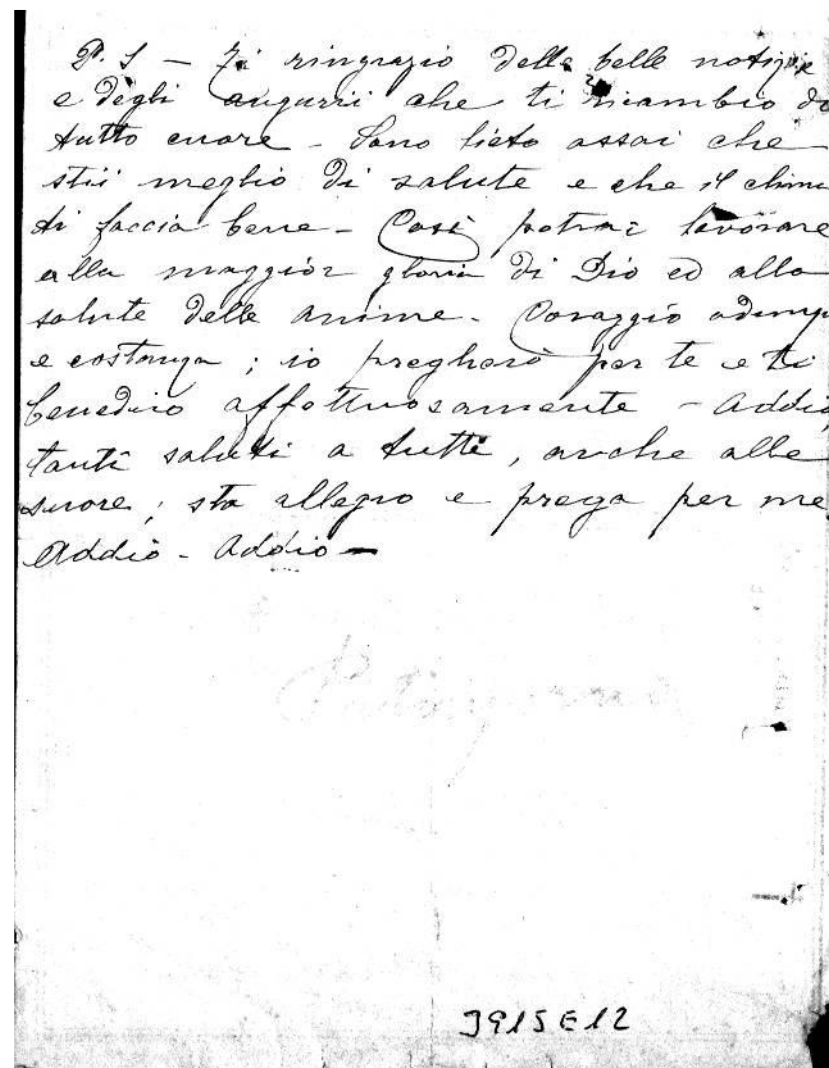 P. S — Ti ringrazio delle belle notizie
e degli augurii che ti ricambio di
tutto cuore - Sono lieto assai che
stii meglio di salute e che il clima
ti faccia bene - Così potrai lavorare
alla maggior gloria di Dio ed alla
salute delle anime. Coraggio adunq
e costanza ; io pregherò per te e ti
benedico affettuosamente - addio,
tanti saluti a tutti, anche alle
suore ; sta allegro e prega per me
Addio - addio —
3915E12